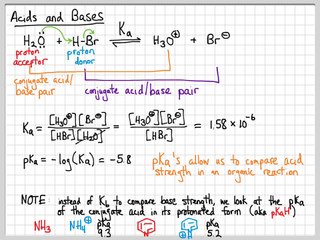 Acids and Bases
H₂O + H-Br ⇌ H₃O⊕ + Br⊖
Ka
proton acceptor
proton donor
conjugate acid/base pair
conjugate acid/base pair
Ka = [H₃O⊕][Br⊖] / [HBr][H₂O] = [H₃O⊕][Br⊖] / [HBr] = 1.58 × 10⁻⁶
pKa = -log(Ka) = -5.8
pKa's allow us to compare acid
strength in an organic reaction
NOTE instead of Kb to compare base strength, we look at the pKa
of the conjugate acid in its protonated form (aka pKaH)
NH₃ NH₄⊕ pKa 9.3 N N⊕ H pKa 5.2